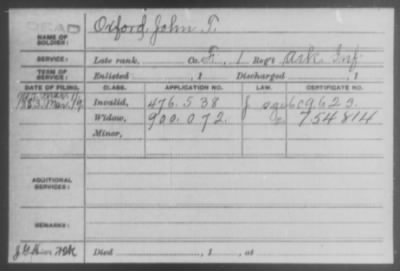 DEAD
NAME OF SOLDIER: Oxford, John T.
SERVICE: Late rank, Co. F, 1 Reg't Ark Inf
TERM OF SERVICE: Enlisted , 1 Discharged , 1
DATE OF FILING. CLASS. APPLICATION NO. LAW. CERTIFICATE NO.
1883 Mar. 19 Invalid, 476.538 609623
Widow, 900.072 754814
Minor,
ADDITIONAL SERVICES:
REMARKS:
Died , 1 , at